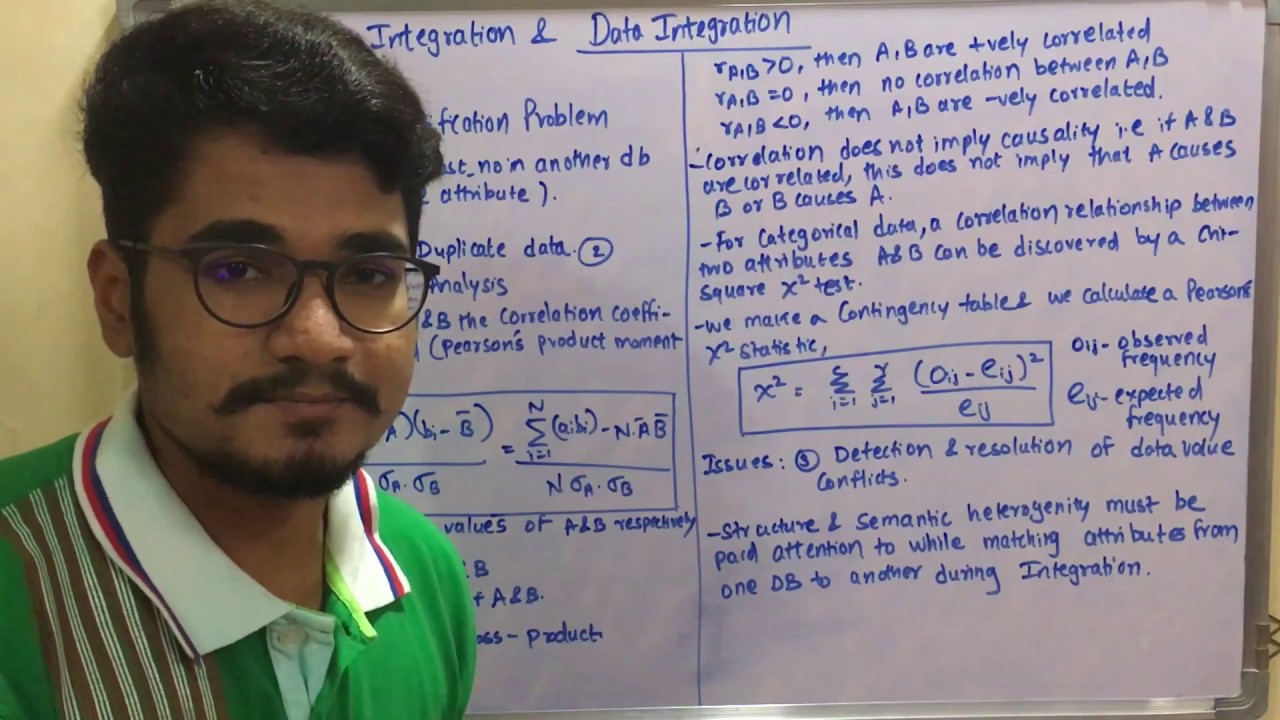 Integration & Data Integration
ification Problem
ust_no in another db
attribute ).
Duplicate data. ②
Analysis
&B the Correlation coeffi-
(Pearson's product moment
A)(bi - B̅) = N Σ i=1 (aibi) - N.A̅B̅
σA.σB N σA.σB
values of A&B respectively
B
A&B.
oss-product
rA,B >0, then A,B are +vely correlated
rA,B =0, then no correlation between A,B
rA,B <0, then A,B are -vely correlated.
-Correlation does not imply causality i.e if A&B
are correlated, this does not imply that A causes
B or B causes A.
-For Categorical data, a correlation relationship between
two attributes A&B can be discovered by a Chi-
square χ² test.
-we make a Contingency table & we calculate a Pearson's
χ² statistic,
χ² = c Σ i=1 r Σ j=1 (oij - eij)² / eij
oij - observed
frequency
eij - expected
frequency
Issues: ③ Detection & resolution of data value
Conflicts.
-Structure & Semantic heterogenity must be
paid attention to while matching attributes from
one DB to another during Integration.